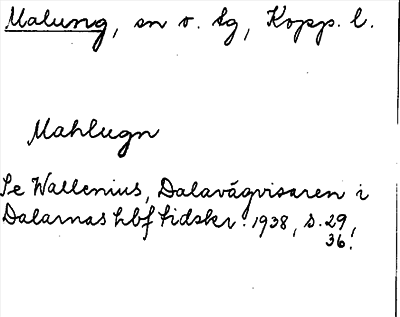 Malung, sn o. tg, Kopp. l.
Mahlugn
Se Wallenius, Dalavägvisaren i
Dalarnas hbf tidskr. 1938, s. 29,
36.